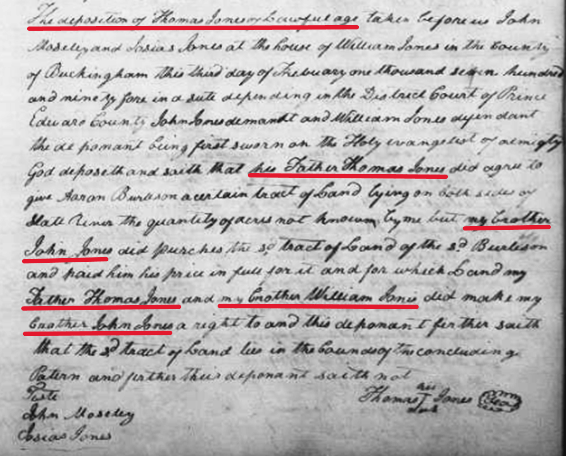 The deposition of Thomas Jones of Lawful age taken before us John
Moseley and Josias Jones at the house of William Jones in the County
of Buckingham this third day of Febuary one thousand seven hundred
and ninety fore in a sute depending in the District Court of Prince
Edward County John Jones demandt and William Jones defendant
the deponant being first sworn on the Holy evangelist of almighty
God deposeth and saith that his Father Thomas Jones did agree to
give Aaron Burleson a certain tract of Land lying on both sides of
Slate River the quantity of acres not known by me but my Brother
John Jones did purches the sd. tract of Land of the sd. Burleson
and paid him his price in full for it and for which Land my
Father Thomas Jones and my Brother William Jones did make my
Brother John Jones a right to and this deponant ferther saith
that the sd tract of Land lies in the bounds of the concluding
Patern and ferther this deponant saith not
Teste
Thomas his I mark Jones Seal
John Moseley
Josias Jones